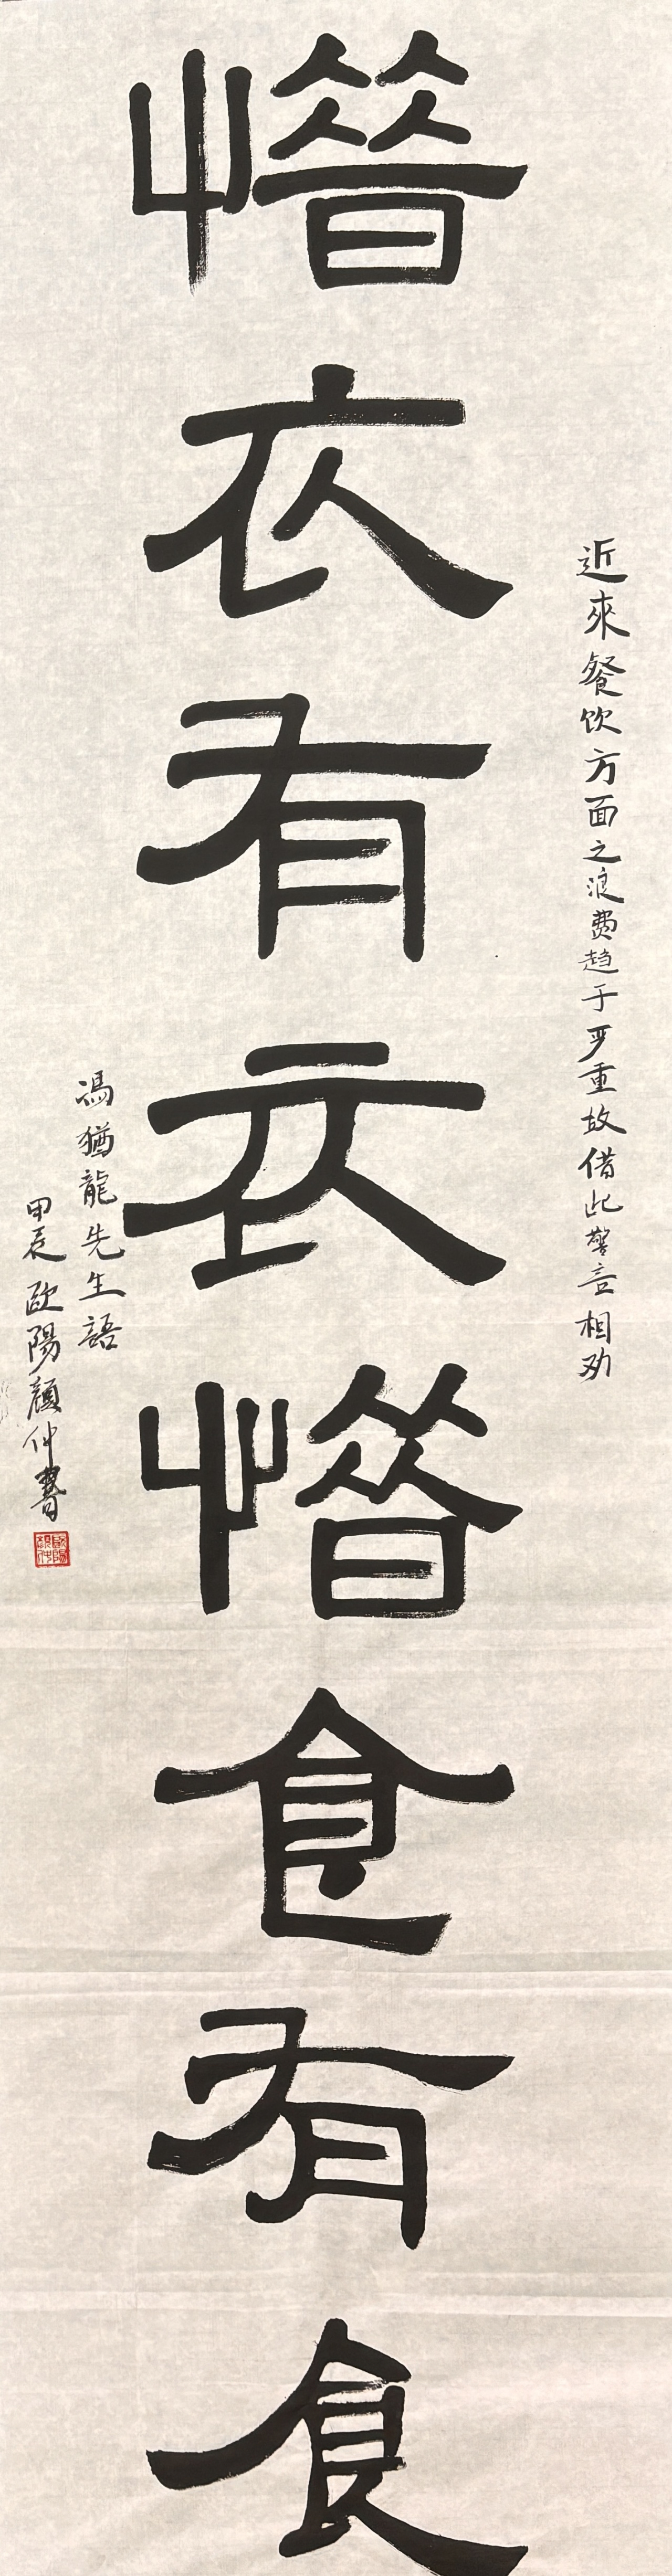 近來餐饮方面之浪费趋于严重故借此警言相劝
惜衣有衣惜食有食
馮猶龍先生語
甲辰歐陽顏仲書